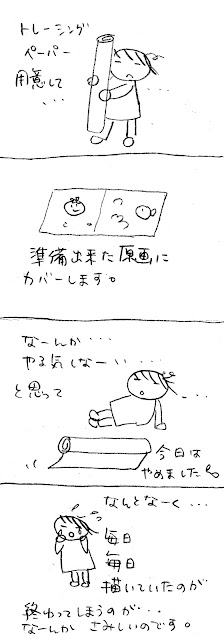 トレーシング
ペーパー
用意して
・・・
準備出来た原画に
カバーします。
なーんか・・・
やる気しなーい・・・
と思って
・・・
今日は
やめました
なんとなーく・・・
毎日
毎日
描いていたのが
終わってしまうのが・・・
なーんか さみしいのです。